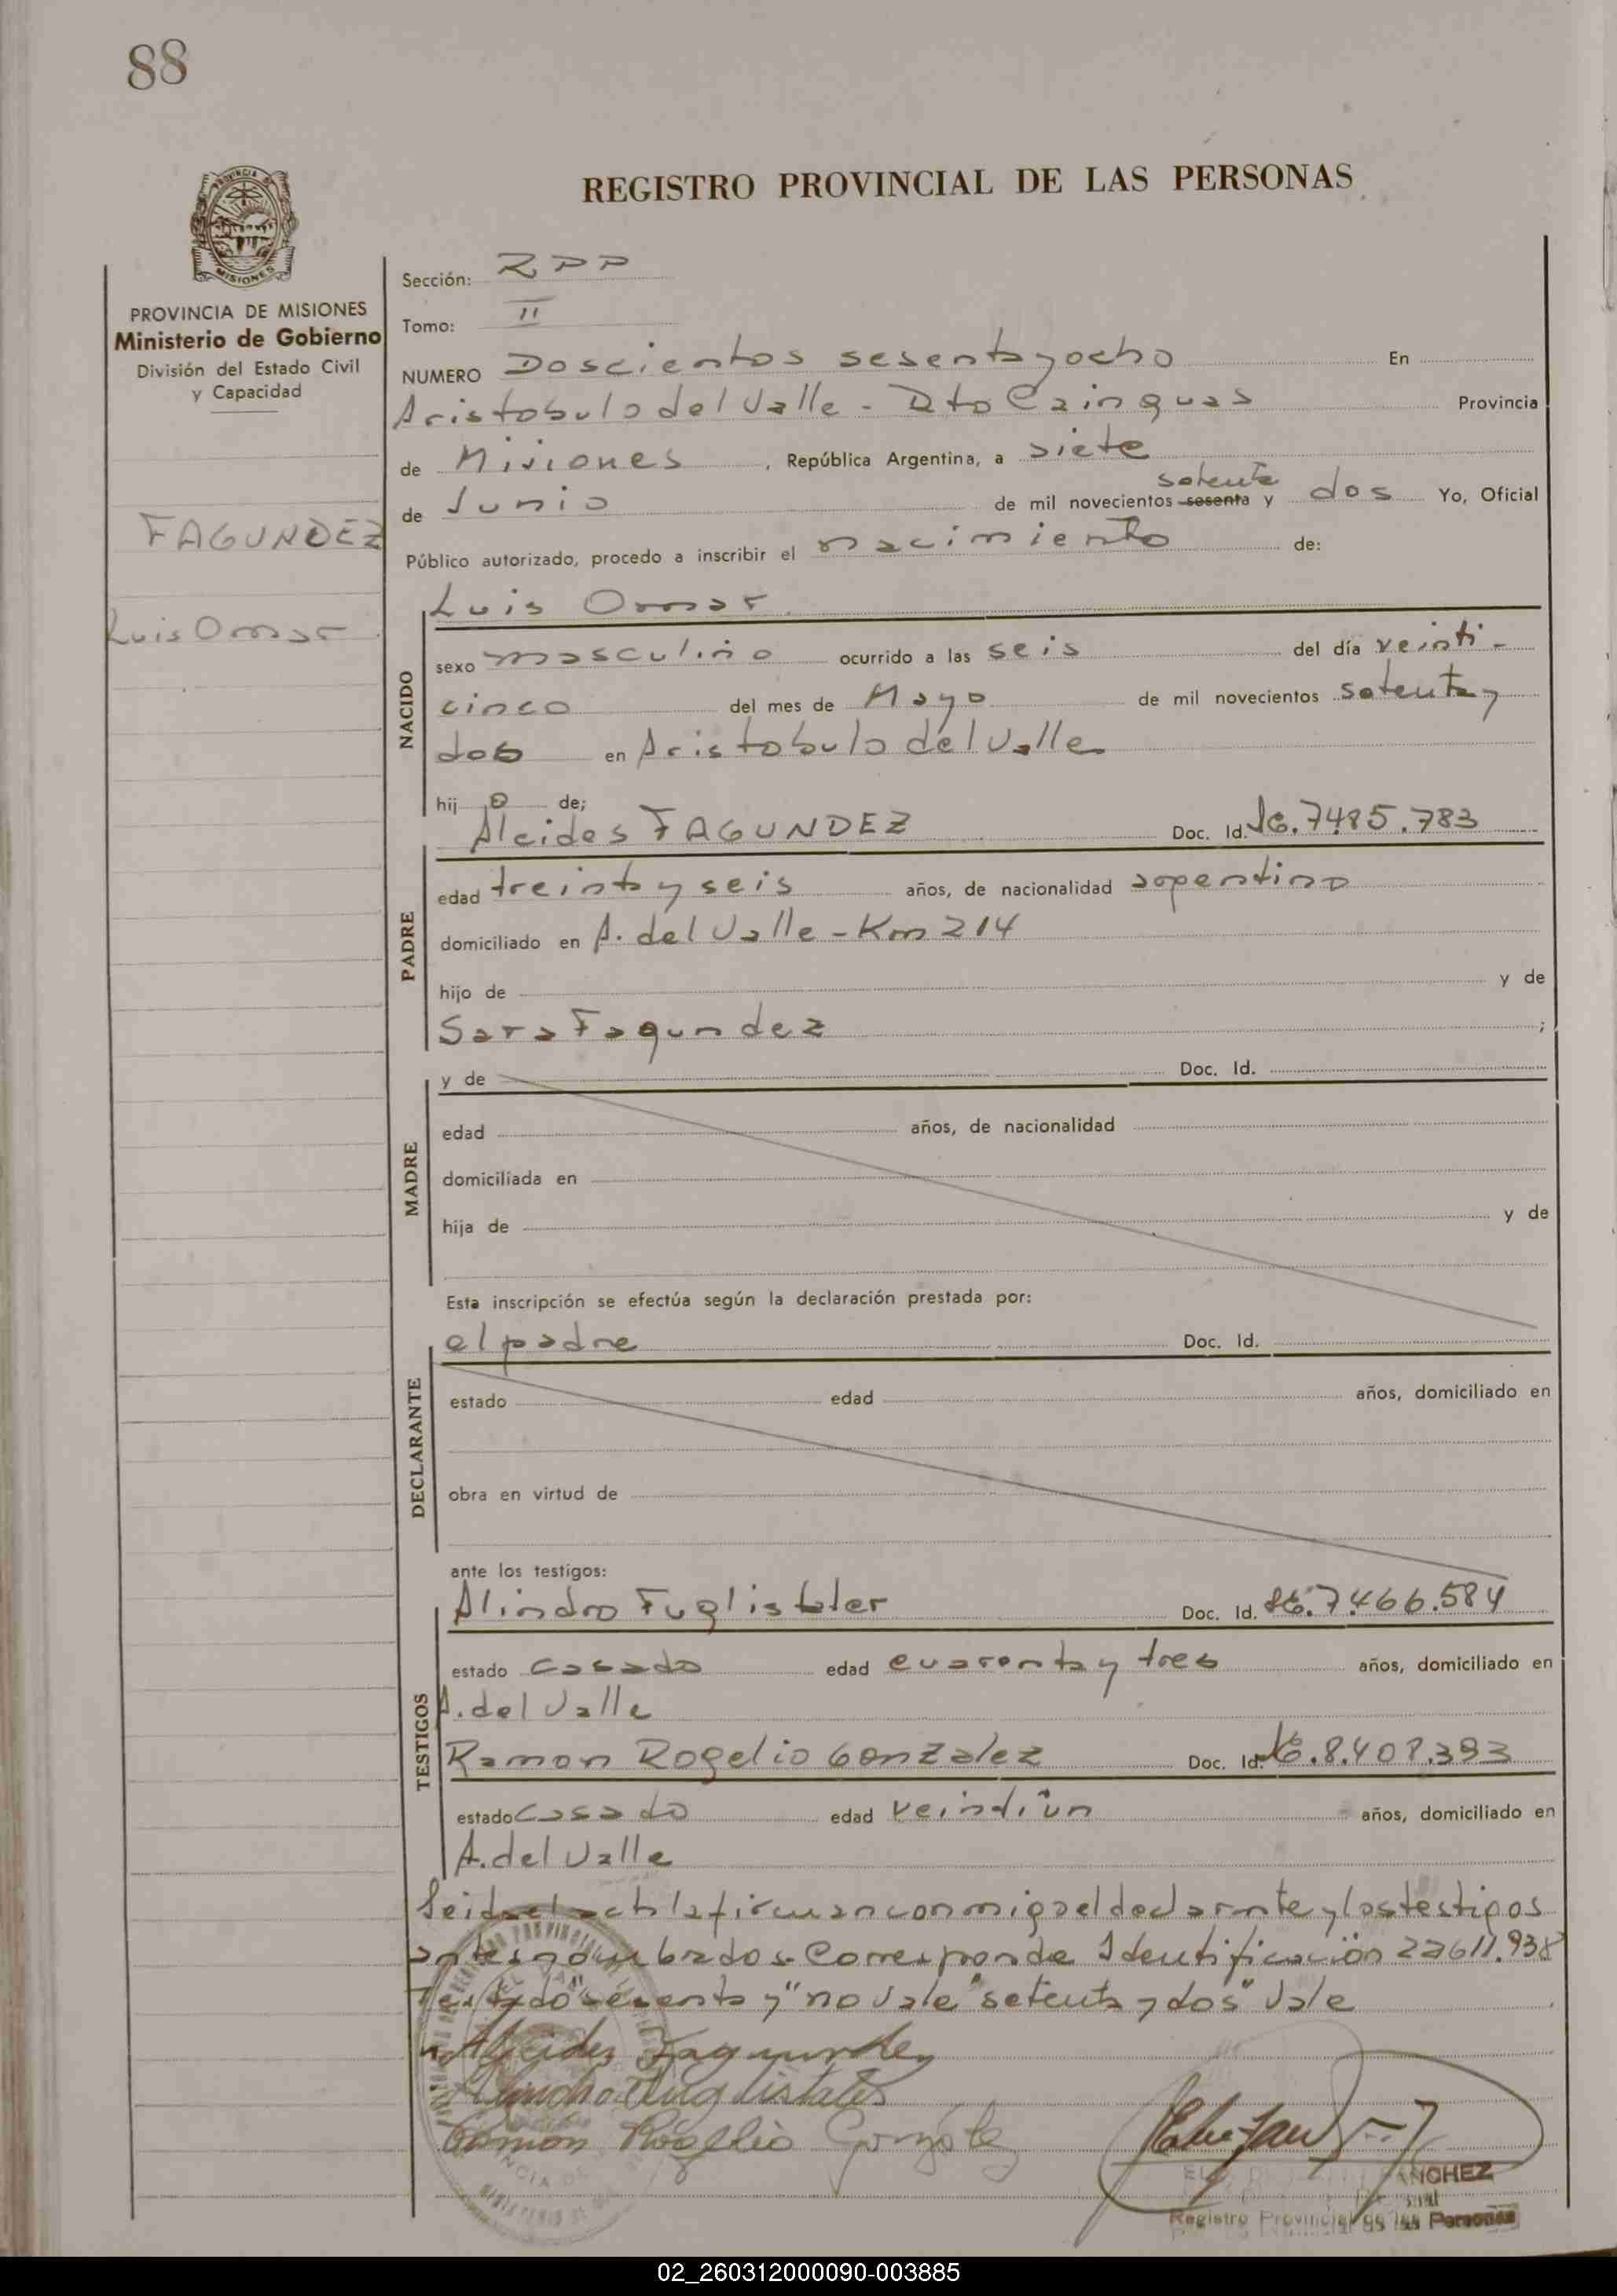 88
REGISTRO PROVINCIAL DE LAS PERSONAS
PROVINCIA DE MISIONES
Ministerio de Gobierno
División del Estado Civil
y Capacidad
FAGUNDEZ
Luis Omar
Sección: RPP
Tomo: II
NUMERO Doscientos sesenta y ocho En
Aristobulo del Valle - Dto Cainguas Provincia
de Misiones, República Argentina, a siete
setenta
de Junio de mil novecientos sesenta y dos Yo, Oficial
Público autorizado, procedo a inscribir el nacimiento de:
Luis Omar
NACIDO
sexo masculino ocurrido a las seis del día veinti-
cinco del mes de Mayo de mil novecientos setenta y
dos en Aristobulo del Valle
hijo de;
Alcides FAGUNDEZ Doc. Id. 7.485.783
PADRE
edad treinta y seis años, de nacionalidad argentino
domiciliado en A. del Valle - Km 214
hijo de y de
Sara Fagundez ;
MADRE
y de Doc. Id.
edad años, de nacionalidad
domiciliada en
hija de y de
Esta inscripción se efectúa según la declaración prestada por:
el padre Doc. Id.
DECLARANTE
estado edad años, domiciliado en
obra en virtud de
ante los testigos:
Alindro Fuglistaler Doc. Id. 7.466.584
TESTIGOS
estado casado edad cuarenta y tres años, domiciliado en
A. del Valle
Ramon Rogelio Gonzalez Doc. Id. 8.407.393
estado casado edad veintiun años, domiciliado en
A. del Valle
Leida el acta la firman conmigo el declarante y los testigos
antes nombrados. Corresponde Identificación 22611.938
Testado "sesenta y" no vale "setenta y dos" Vale
Alcides Fagundez
Ramon Rogelio González
SANCHEZ
Registro Provincial de las Personas
02_260312000090-003885